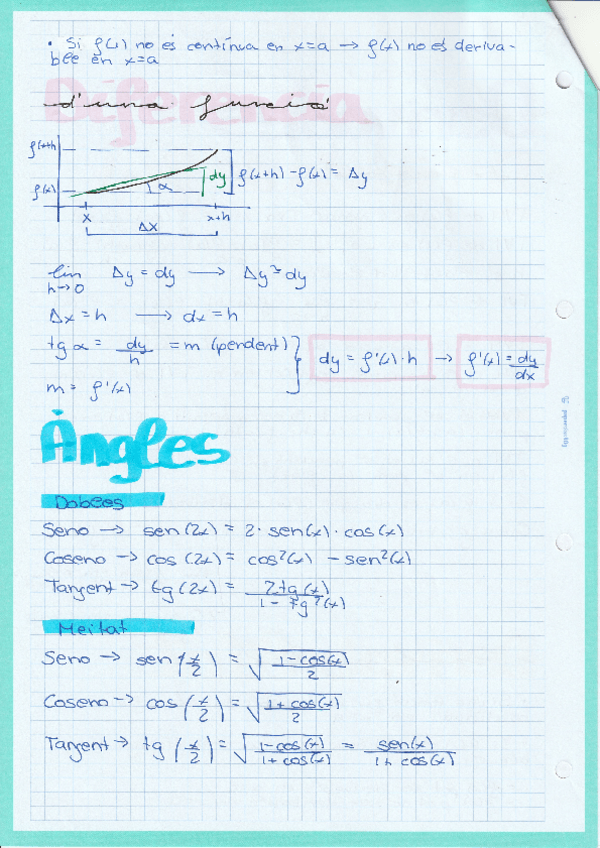 • Si f(x) no és contínua en x=a → f(x) no és deriva-
ble en x=a
Diferencia
d'una funció
f(x+h)
f(x)
α
dy
f(x+h) - f(x) = Δy
x
x+h
Δx
lim h→0 Δy = dy → Δy ≅ dy
Δx = h → dx = h
tg α = dy/h = m (pendent)
m = f'(x)
dy = f'(x)·h → f'(x) = dy/dx
Àngles
Dobles
Seno → sen(2x) = 2·sen(x)·cos(x)
Coseno → cos(2x) = cos²(x) - sen²(x)
Tangent → tg(2x) = 2tg(x)/1-tg²(x)
Meitat
Seno → sen(x/2) = √(1-cos(x)/2)
Coseno → cos(x/2) = √(1+cos(x)/2)
Tangent → tg(x/2) = √(1-cos(x)/1+cos(x)) = sen(x)/1+cos(x)